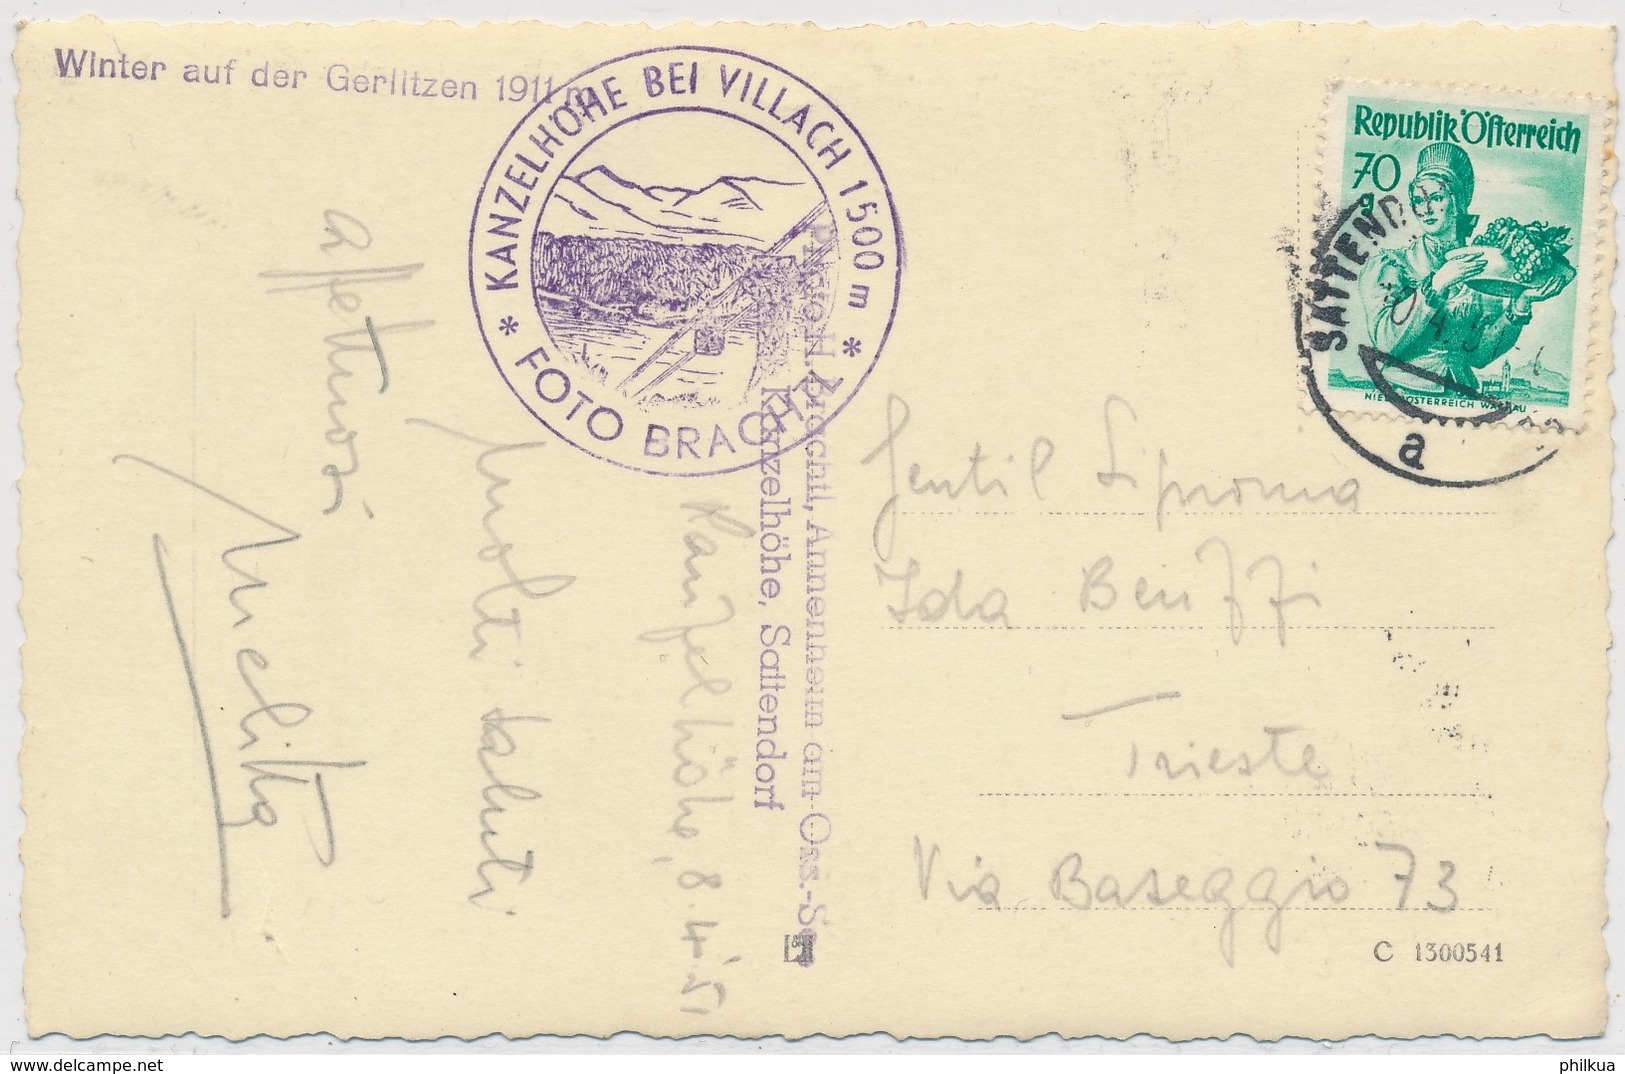 Winter auf der Gerlitzen 1911 m
* KANZELHÖHE BEI VILLACH 1500 m *
FOTO BRACHTL
Republik Österreich
70
g
NIEDERÖSTERREICH WACHAU
SATTENDORF
a
Photo H. Brachtl, Annenheim am Oss.-See
Kanzelhöhe, Sattendorf
Kanzelhöhe, 8.4.51
Molti saluti
affettuosi
Melitta
Gentil Signorina
Ida Benzzi
Trieste
Via Baseggio 73
C 1300541
philkua